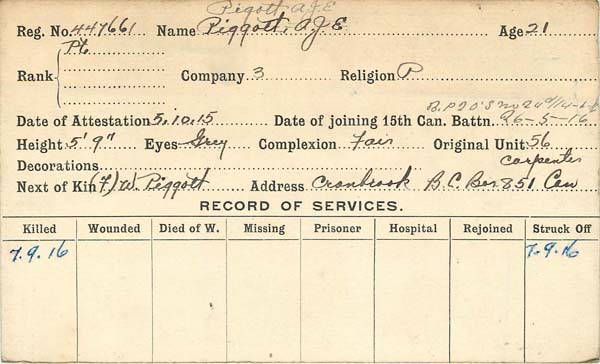 Pigott A.J.E
Reg. No. 447661 Name Piggott, A.J.E Age 21
Pte
Rank Company 3 Religion P
Date of Attestation 5.10.15 Date of joining 15th Can. Battn. 26-5-16
Height 5' 9" Eyes Grey Complexion Fair Original Unit 56
Decorations carpenter
Next of Kin (F) W. Piggott Address Cranbrook B.C. Box 851 Can
RECORD OF SERVICES.
Killed Wounded Died of W. Missing Prisoner Hospital Rejoined Struck Off
7.9.16 7.9.16